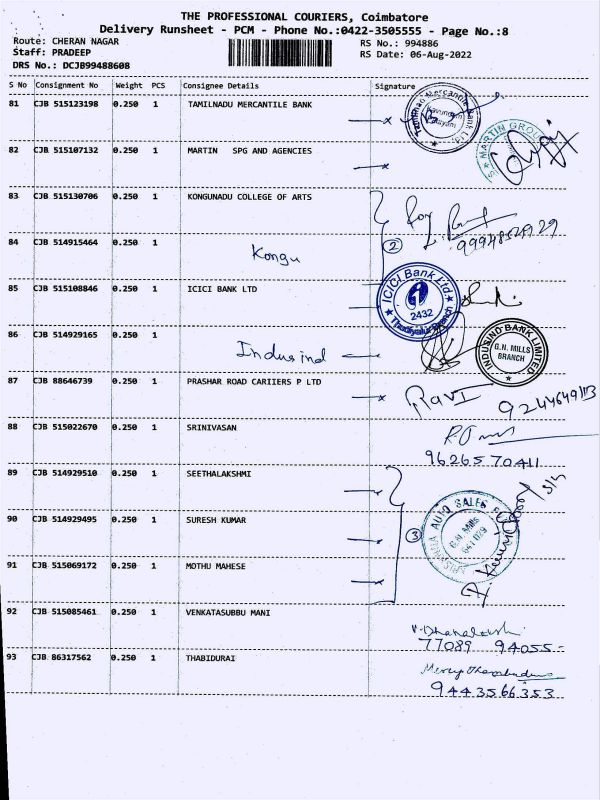 THE PROFESSIONAL COURIERS, Coimbatore
Delivery Runsheet - PCM - Phone No.:0422-3505555 - Page No.:8
Route: CHERAN NAGAR RS No.: 994886
Staff: PRADEEP RS Date: 06-Aug-2022
DRS No.: DCJB99488608
S No Consignment No Weight PCS Consignee Details Signature
81 CJB 515123198 0.250 1 TAMILNADU MERCANTILE BANK
82 CJB 515107132 0.250 1 MARTIN SPG AND AGENCIES
MARTIN GROUP
83 CJB 515130706 0.250 1 KONGUNADU COLLEGE OF ARTS
84 CJB 514915464 0.250 1 Kongu
2
85 CJB 515108846 0.250 1 ICICI BANK LTD
ICICI Bank Ltd.
2432
Thudiyalur Branch
86 CJB 514929165 0.250 1 Indusind
INDUSIND BANK LIMITED
G.N. MILLS
BRANCH
87 CJB 88646739 0.250 1 PRASHAR ROAD CARIIERS P LTD RAVI
88 CJB 515022670 0.250 1 SRINIVASAN
9626570411
89 CJB 514929510 0.250 1 SEETHALAKSHMI
90 CJB 514929495 0.250 1 SURESH KUMAR
3
AUTO SALES
G.N. MILLS
641 029
91 CJB 515069172 0.250 1 MOTHU MAHESE
92 CJB 515085461 0.250 1 VENKATASUBBU MANI
77089 94055
93 CJB 86317562 0.250 1 THABIDURAI
9443566353